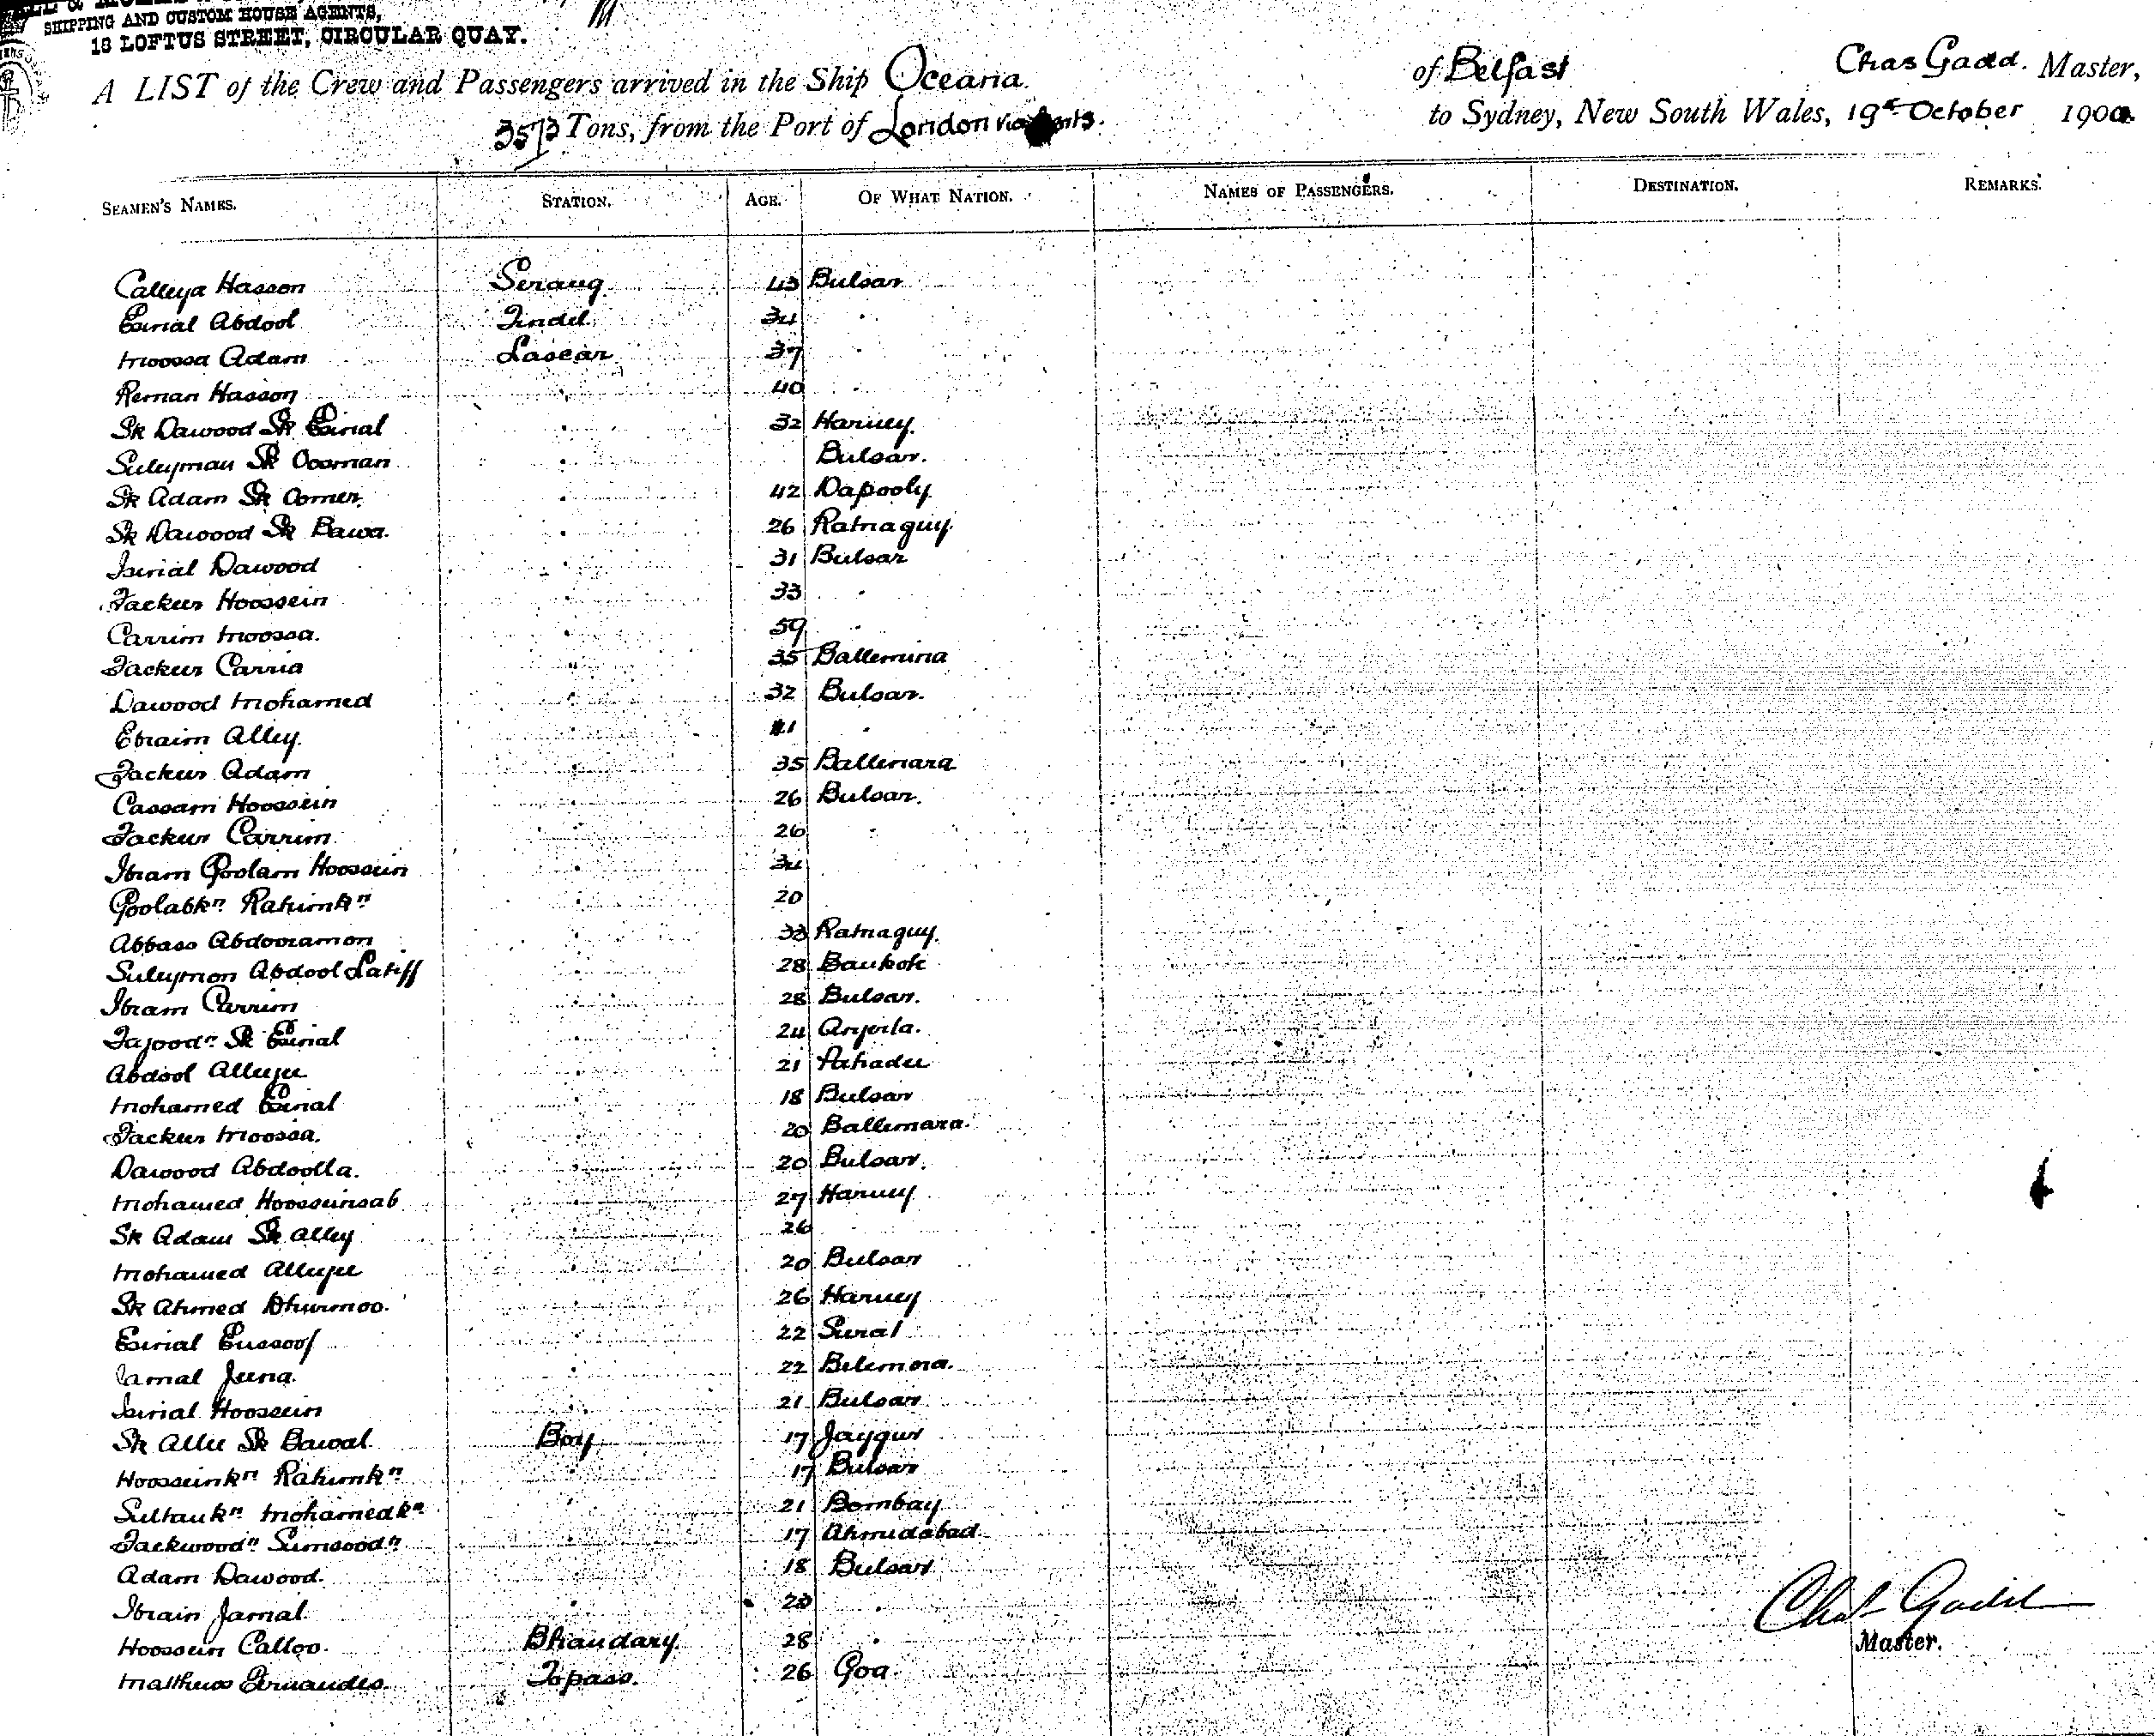 SHIPPING AND CUSTOM HOUSE AGENTS,
18 LOFTUS STREET, CIRCULAR QUAY.
A LIST of the Crew and Passengers arrived in the Ship Oceana. of Belfast Chas Gadd. Master,
Tons, from the Port of London via to Sydney, New South Wales, 19th October 190
SEAMEN'S NAMES. STATION. AGE. OF WHAT NATION. NAMES OF PASSENGERS. DESTINATION. REMARKS.
Calleya Hasson Serang 43 Bulsar
Esmal Abdool Tindel 34 "
Moossa Adam Lascar 37 "
Reman Hasson " 40 "
Sk Dawood Sk Esmal " 32 Harney.
Suleyman Sk Oosman " Bulsar.
Sk Adam Sk Omer " 42 Dapooly
Sk Dawood Sk Bawa. " 26 Ratnaguy
Ismal Dawood " 31 Bulsar
Fackur Hoossein " 33 "
Carrim Moossa. " 59 "
Fackur Carria " 35
Dawood Mohamed " 32 Bulsar.
Ebraim Alley. " "
Fackur Adam " 35 Ballimara
Cassam Hoossein " 26 Bulsar.
Fackur Carrim " 26 "
Ibram Goolam Hoossein " 34
Goolabkn Rahimkn " 20
Abbass Abdooramon " 33 Ratnaguy.
Suleymon Abdool Latiff " 28 Baukok
Ibram Carrim " 28 Bulsar.
Sk Esmal " 24
Abdool Alleyee " 21 Pahadee
Mohamed Esmal " 18 Bulsar
Fackur Moossa. " 20 Ballimara.
Dawood Abdoolla. " 20 Bulsar.
Mohamed Hoosseinsab " 27 Harney
Sk Adam Sk Alley " 26
Mohamed Alleyee " 20 Bulsar
Sk Ahmed Dhurmoo. " 26 Harney
Esmal Eussoof " 22 Surat
Jamal Jeena. " 22 Belemora.
Ismal Hoossein " 21 Bulsar
Sk Allee Sk Bawal. Boy 17 Jaygur
Hoosseinkn Rahimkn " 17 Bulsar
Sultankn Mohamedkn " 21 Bombay
17 Ahmedabad
Adam Dawood. " 18 Bulsar
Ibrain Jamal " 20 "
Hoossein Calloo. Bhandary. 28 "
Matthews Fernandes. Topass. 26 Goa.
Chas Gadd
Master.